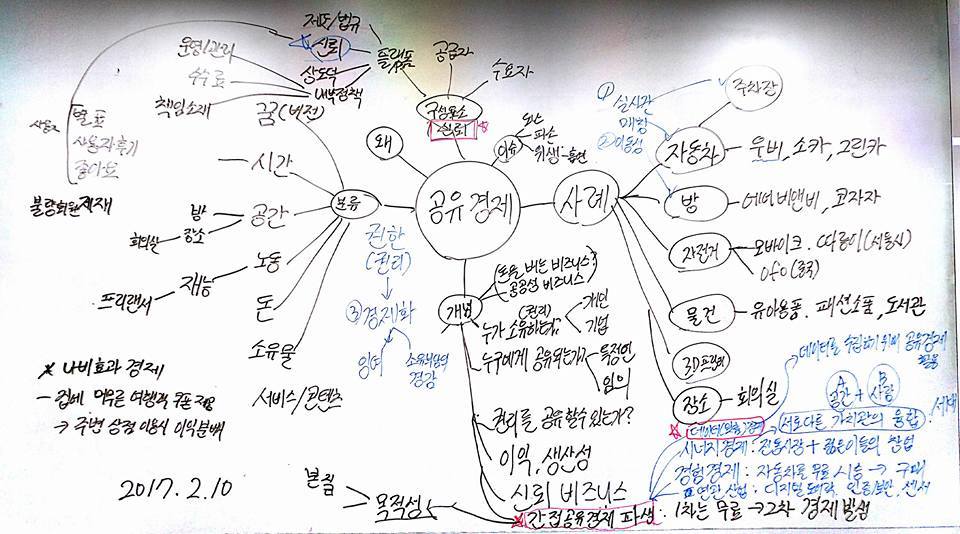 제도/법규
★ 신뢰
플랫폼
상도덕
내부정책
운영/관리
수수료
책임소재
공급자
수요자
구성요소
신뢰 ★
왜
이슈
도난
파손
위생
꿈(비전)
별표
사용자후기
좋아요
불량회원제재
시간
방
장소
회의실
공간
분류
노동
재능
프리랜서
돈
소유물
서비스/콘텐츠
공유경제
권한
(권리)
③경제화
잉여
경감
개념
(돈을 버는 비즈니스?
공공성 비즈니스
(권리)
누가 소유하는가?
개인
기업
누구에게 공유되는가?
특정인
임의
권리를 공유할 수 있는가?
이익, 생산성
신뢰 비즈니스
★ 간접공유경제 파생 : 1차는 무료→2차 경제 발생
목적성
본질
사례
① 실시간
매칭
② 이동성
주차장
자동차
우버, 소카, 그린카
방
에어비앤비, 코자자
자전거
모바이크, 따릉이(서울시)
ofo(중국)
물건
유아용품, 패션소품, 도서관
3D프린터
장소
회의실
데이터를 수집하기 위해 공유경제
활용
A
공간
+
B
사람
서로다른 가치관의 융합
시너지경제 : 전통시장 + 젊은이들의 창업
경험경제 : 자동차를 무료 시승 → 구매
연관산업 : 디지털도어락, 인증/보안, 센서
★ 나비효과 경제
- 집에 머무른 여행객 쿠폰 제공
→ 주변 상점 이용시 이익분배
2017.2.10